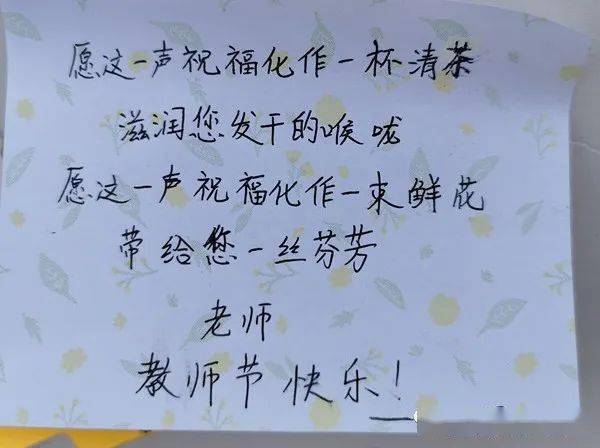 愿这一声祝福化作一杯清茶
滋润您发干的喉咙
愿这一声祝福化作一束鲜花
带给您一丝芬芳
老师
教师节快乐!